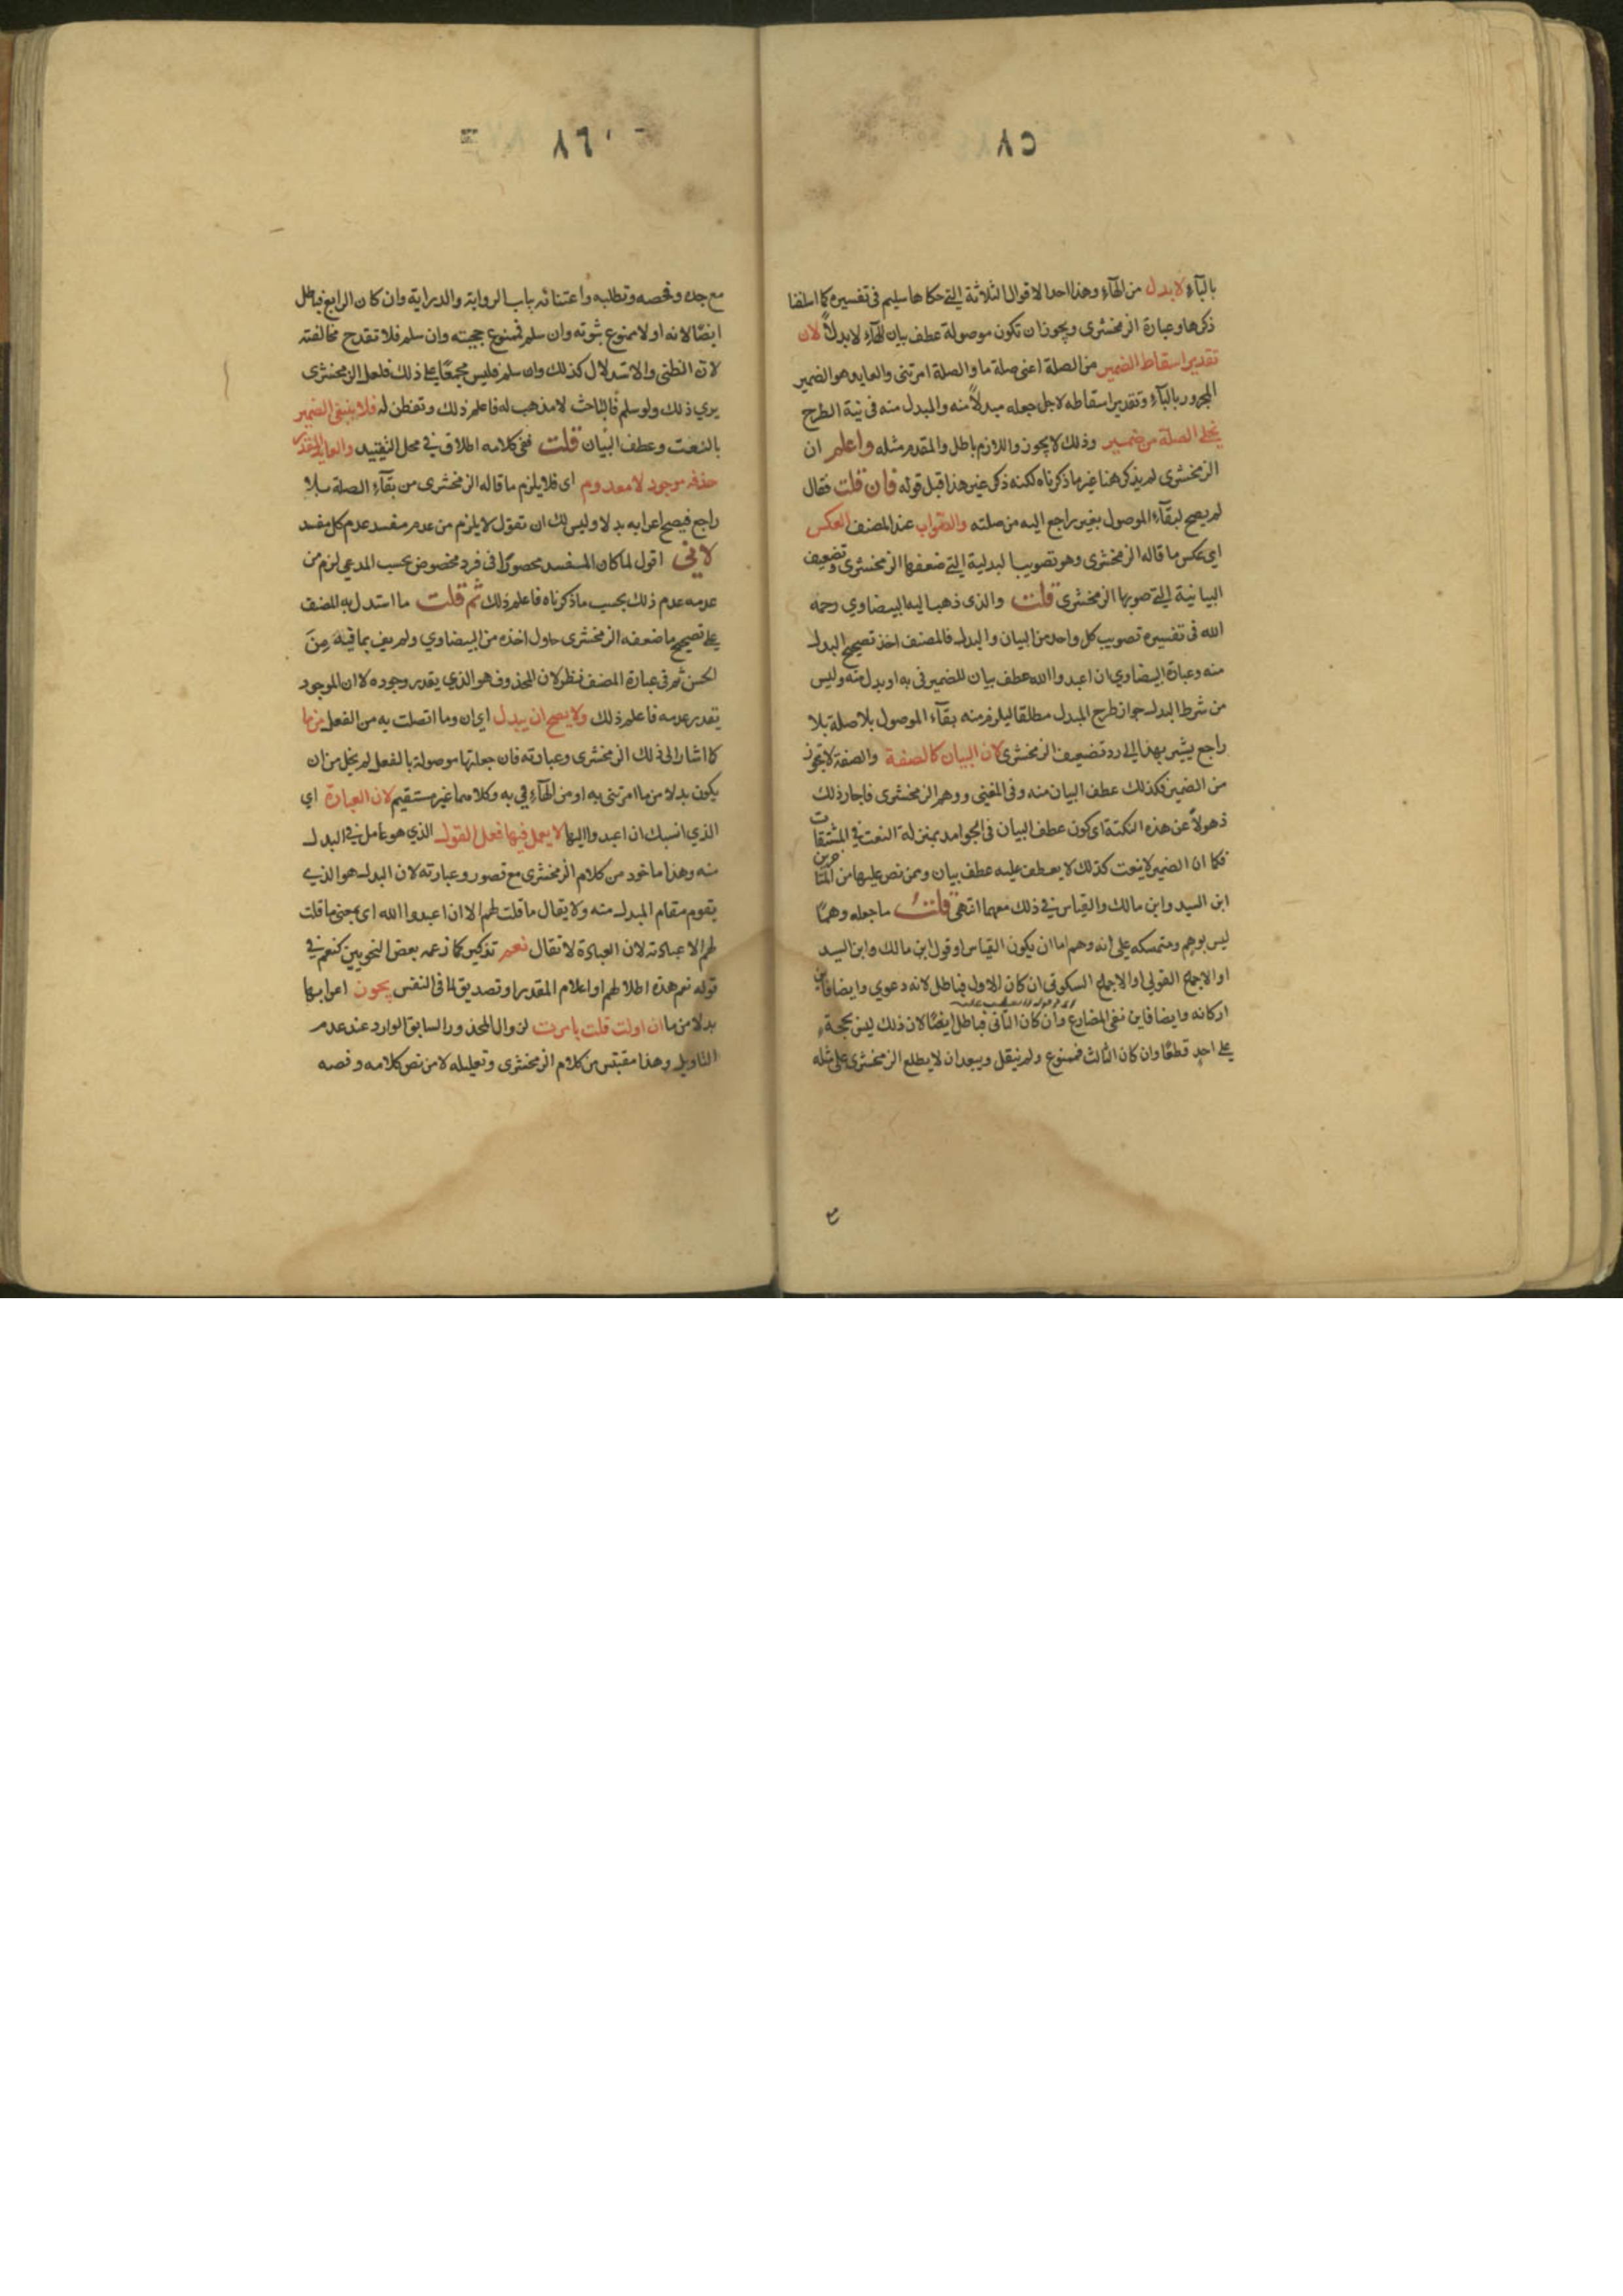 ٨٥
بالبآء لا بدل من الهآء وهذا احد الاقوال الثلاثة التي حكاها سليم في تفسيره كما اسلفنا
ذكرها وعبارة الزمخشرى ويجوز ان تكون موصولة عطف بيان للهآء لا بدلاً لان
تقدير اسقاط الضمير من الصلة اعنى صلة ما والصلة امرتنى والعايد هو الضمير
المجرور بالبآء وتقدير اسقاطه لاجل جعله مبدلاً منه والمبدل منه فى نية الطرح
يخلى الصلة من ضمير وذلك لا يجوز واللازم باطل والمقدم مثله واعلم ان
الزمخشرى لم يذكر هنا غير ما ذكرناه لكنه ذكر غير هذا قبل قوله فان قلت فقال
لم يصح لبقآء الموصول بغير راجع اليه من صلته والصواب عند المصنف العكس
اى عكس ما قاله الزمخشرى وهو تصويب البدلية التي ضعفها الزمخشرى وتضعيف
البيانية التي صوبها الزمخشرى قلت والذى ذهب اليه البيضاوي رحمه
الله فى تفسيره تصويب كل واحد من البيان والبدل فالمصنف اخذ تصحيح البدل
منه وعبارة البيضاوي ان اعبدوا الله عطف بيان للضمير فى به او بدل منه وليس
من شرط البدل جواز طرح المبدل مطلقا ليلزم منه بقآء الموصول بلا صلة بلا
راجع يشير بهذا الى رد تضعيف الزمخشرى لان البيان كالصفة والصفة لا تجوز
من الضمير فكذلك عطف البيان منه وفى المغنى ووهم الزمخشرى فاجاز ذلك
ذهولاً عن هذه النكتة اى كون عطف البيان فى الجوامد بمنزلة النعت في المشتقات
فكما ان الضمير لا ينعت كذلك لا يعطف عليه عطف بيان وممن نص عليها من المتاخرين
ابن السيد وابن مالك والقياس في ذلك معهما انتهى قلت ما جعله وهمًا
ليس بوهم ومتمسكه على انه وهم اما ان يكون القياس او قول ابن مالك وابن السيد
او الاجماع القولي او الاجماع السكوتى ان كان الاول فباطل لانه دعوي وايضا فاين
اركانه وايضا فاين نفى المضارع وان كان الثانى فباطل ايضًا لان ذلك ليس بحجة
على احد قطعًا وان كان الثالث فممنوع ولم ينقل ويبعد ان لا يطلع الزمخشرى على مثله
مع
٨٦
مع جده وفحصه وتطلبه واعتنائه باب الرواية والدراية وان كان الرابع فباطل
ايضًا لانه اولا ممنوع ثبوته وان سلم فممنوع حجيته وان سلم فلا تقدح مخالفته
لانه الظنى والاستدلال كذلك وان سلم فليس مجمعًا على ذلك فلعل الزمخشرى
يري ذلك ولو سلم فالباحث لا مذهب له فاعلم ذلك وتفطن له فلا ينبغى الضمير
بالنعت وعطف البيان قلت ففى كلامه اطلاق في محل التقييد والعايد المقدر
حذفه موجود لا معدوم اى فلا يلزم ما قاله الزمخشرى من بقآء الصلة بلا
راجع فيصح اعرابه بدلا وليس لك ان تقول لا يلزم من عدم مفسد عدم كل مفسد
لانى اقول لما كان المفسد محصورًا فى فرد مخصوص بحسب المدعى لزم من
عدمه عدم ذلك بحسب ما ذكرناه فاعلم ذلك ثم قلت ما استدل به المصنف
على تصحيح ما ضعفه الزمخشرى حاول اخذه من البيضاوي ولم يف بما فيه مِنَ
الحسن ثم فى عبارة المصنف نظر لان المحذوف هو الذي يقدر وجوده لا ان الموجود
يقدر عدمه فاعلم ذلك ولا يصح ان يبدل اى ان وما اتصلت به من الفعل من ما
كما اشار الى ذلك الزمخشرى وعبارته فان جعلتها موصولة بالفعل لم يخل من ان
يكون بدلا من ما امرتنى به او من الهآء في به وكلاهما غير مستقيم لان العبادة اي
الذي انسبك ان اعبدوا اليها لا يعمل فيها فعل القول الذي هو عامل في المبدل
منه وهذا ماخوذ من كلام الزمخشرى مع قصور وعبارته لان البدل هو الذي
يقوم مقام المبدل منه ولا يقال ما قلت لهم الا ان اعبدوا الله اى بمعنى ما قلت
لهم الا عبادته لان العبادة لا تقال نعم تذكير كما زعمه بعض النحويين كنعم في
قوله نعم هذه اطلالهم او اعلام المقدر او تصديق لما فى النفس يجوز اعرابها
بدلا من ما ان اولت قلت بامرت لزوال المحذور السابق الوارد عند عدم
التاويل وهذا مقتبس من كلام الزمخشرى وتعليله لا من نص كلامه ونصه